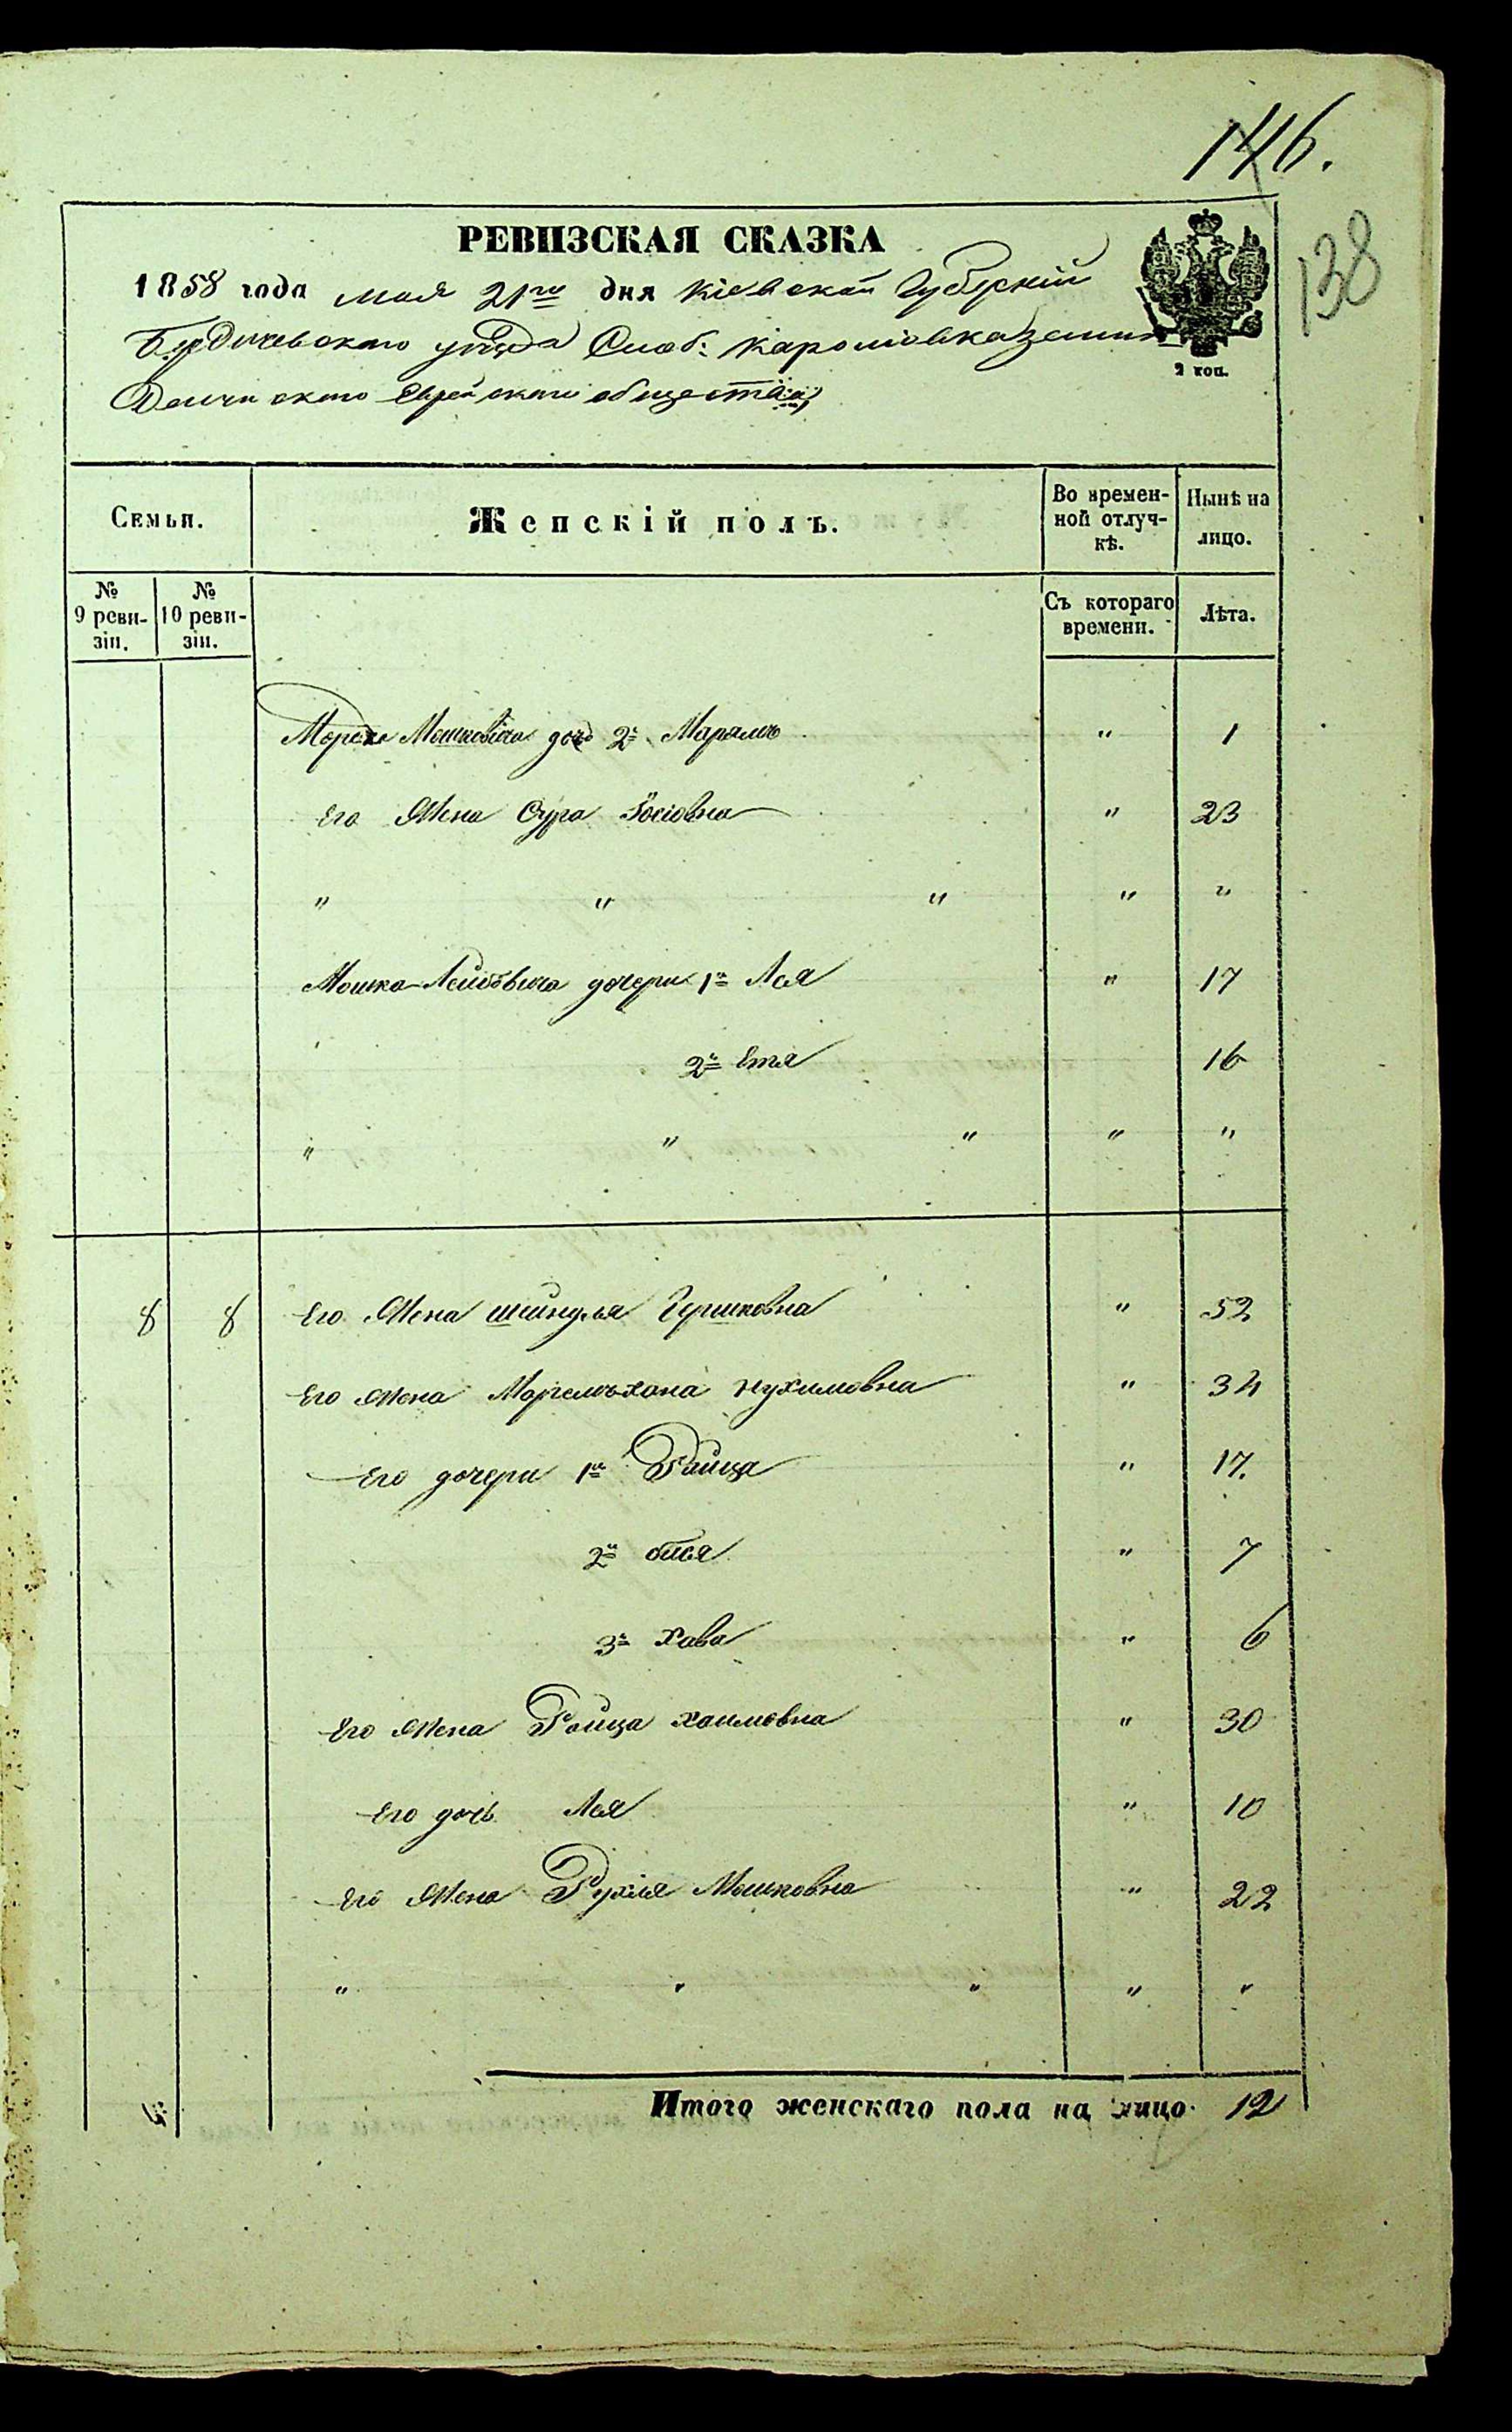 146.
138
РЕВИЗСКАЯ СКАЗКА
1858 года мая 21го дня Кіевской Губерніи
Бердичевскаго уѣзда Слоб:
Еврейскаго общества
2 коп.
Семьи. Женскій полъ. Во времен-ной отлуч-кѣ. Нынѣ на лицо.
№ 9 реви-зіи. № 10 реви-зіи. Съ котораго времени. Лѣта.
Мошковича дочь 2я Марямъ " 1
Его Жена Сура Іосіовна " 23
" " " " "
Мошка Лейбовича дочери 1я Лея " 17
2я Етя 16
" " " " "
8 8 Его Жена Шейндля Гершковна " 52
Его Жена Нухимовна " 34
Его дочери 1я Ройза " 17.
2я " 7
3я Хава " 6
Его Жена Ройза Хаимовна " 30
Его дочь Лея " 10
Его Жена Рухля Мошковна " 22
" " " " "
Итого женскаго пола на лицо 12